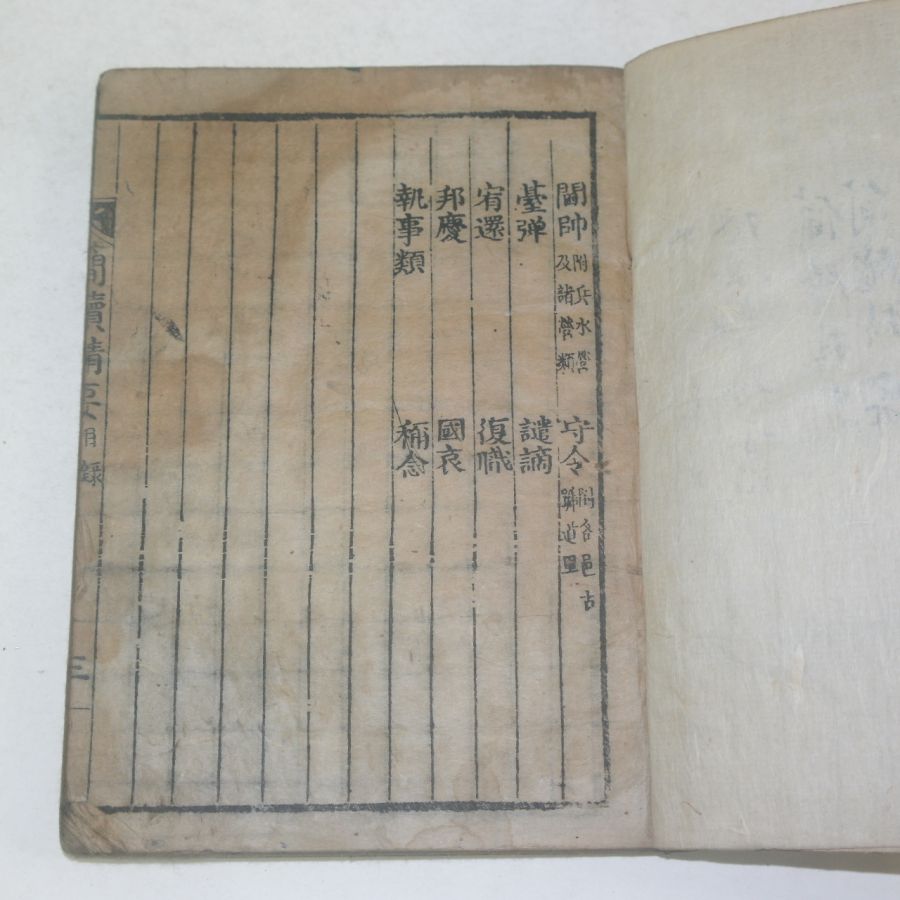 閫帥 附兵水營及諸營類 守令 附各邑古號道里
臺弹 譴謫
宥還 復職
邦慶 國哀
執事類 稱念
簡牘精要 目錄 三